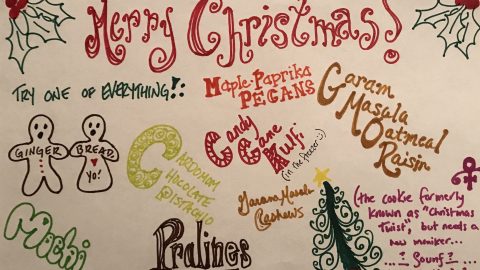 Merry Christmas!
TRY ONE OF EVERYTHING!:
MAPLE-PAPRIKA
PECANS
Garam
Masala
Oatmeal
Raisin
GINGER BREAD
YO!
CARDAMOM
CHOCOLATE
PISTACHIO
Candy
Cane
Kulfi
(in the freezer :)
Garam Masala
Cashews
(the cookie formerly
known as "Christmas
Twist", but needs a
new moniker...
...? Sounf? ...
Mochi
Pralines